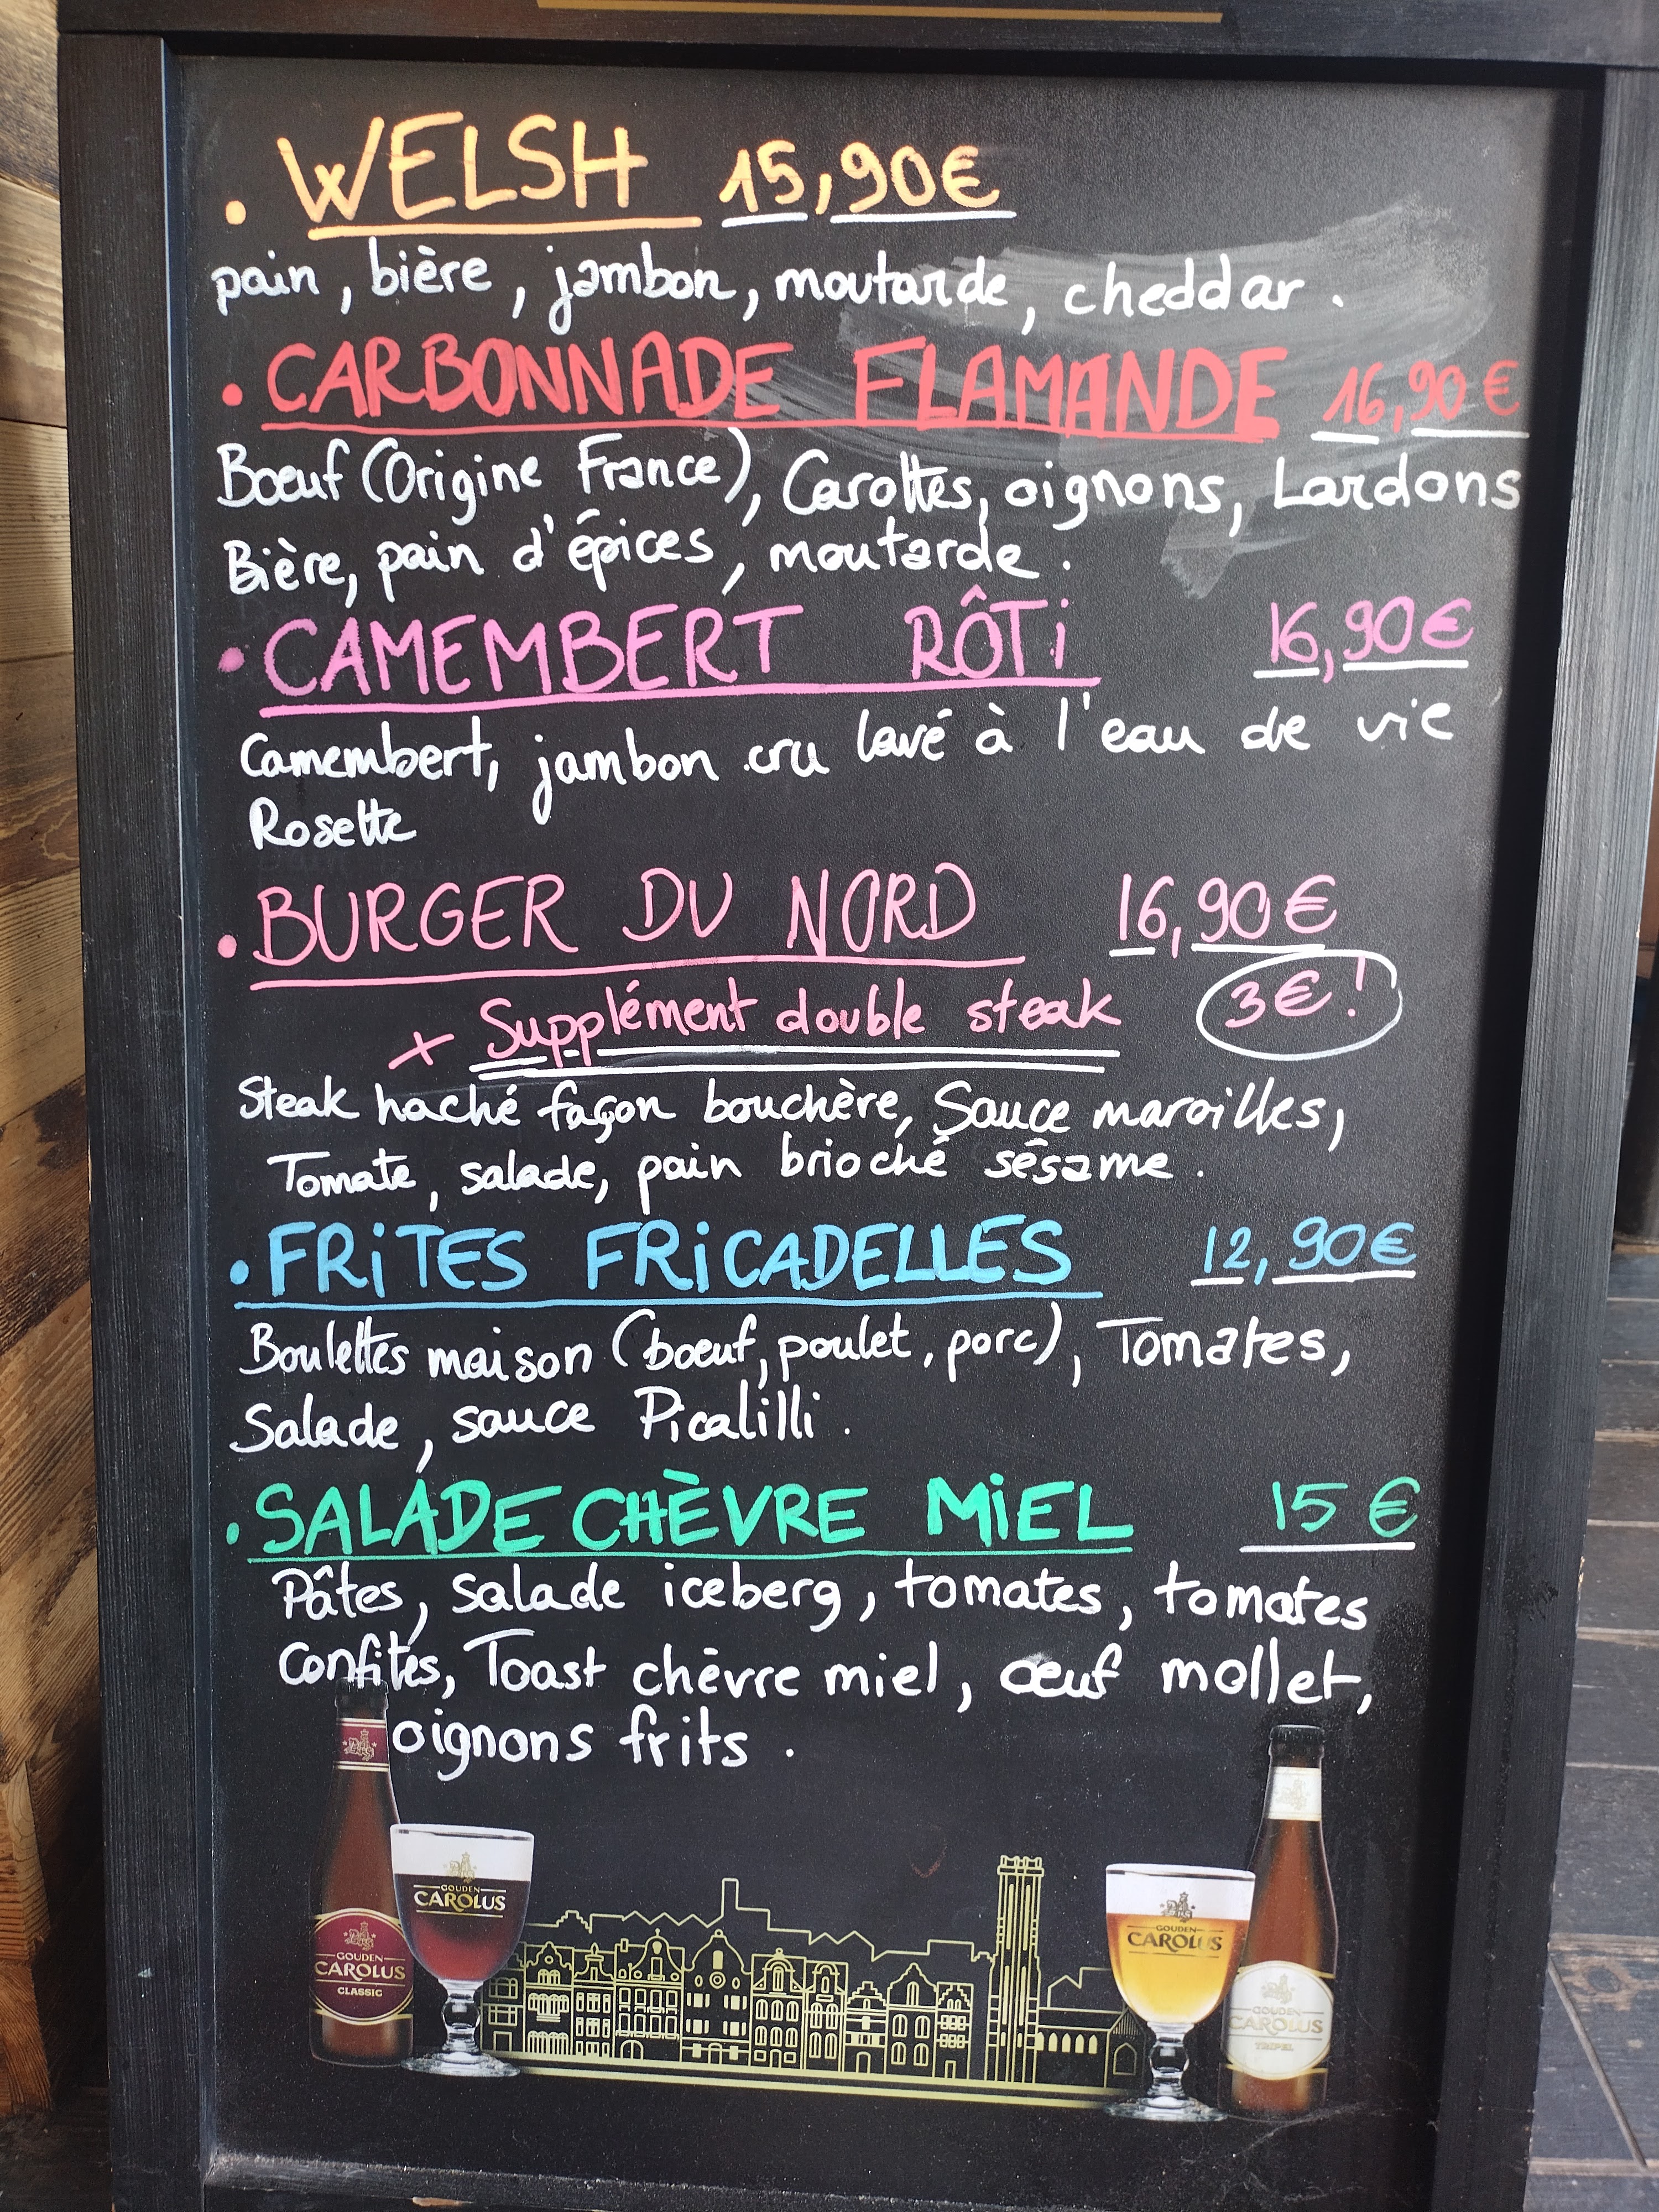 . WELSH 15,90€
pain, bière, jambon, moutarde, cheddar.
. CARBONNADE FLAMANDE 16,90€
Bœuf (Origine France), Carottes, oignons, Lardons
Bière, pain d'épices, moutarde.
. CAMEMBERT RÔTi 16,90€
Camembert, jambon cru lavé à l'eau de vie
Rosette
. BURGER DU NORD 16,90€
+ Supplément double steak 3€!
Steak haché façon bouchère, Sauce maroilles,
Tomate, salade, pain brioché sésame.
. FRiTES FRiCADELLES 12,90€
Boulettes maison (bœuf, poulet, porc), Tomates,
Salade, sauce Picalilli.
. SALADE CHÈVRE MiEL 15€
Pâtes, salade iceberg, tomates, tomates
Confites, Toast chèvre miel, œuf mollet,
oignons frits.
GOUDEN
CAROLUS
CLASSIC
GOUDEN
CAROLUS
GOUDEN
CAROLUS
GOUDEN
CAROLUS
TRIPEL